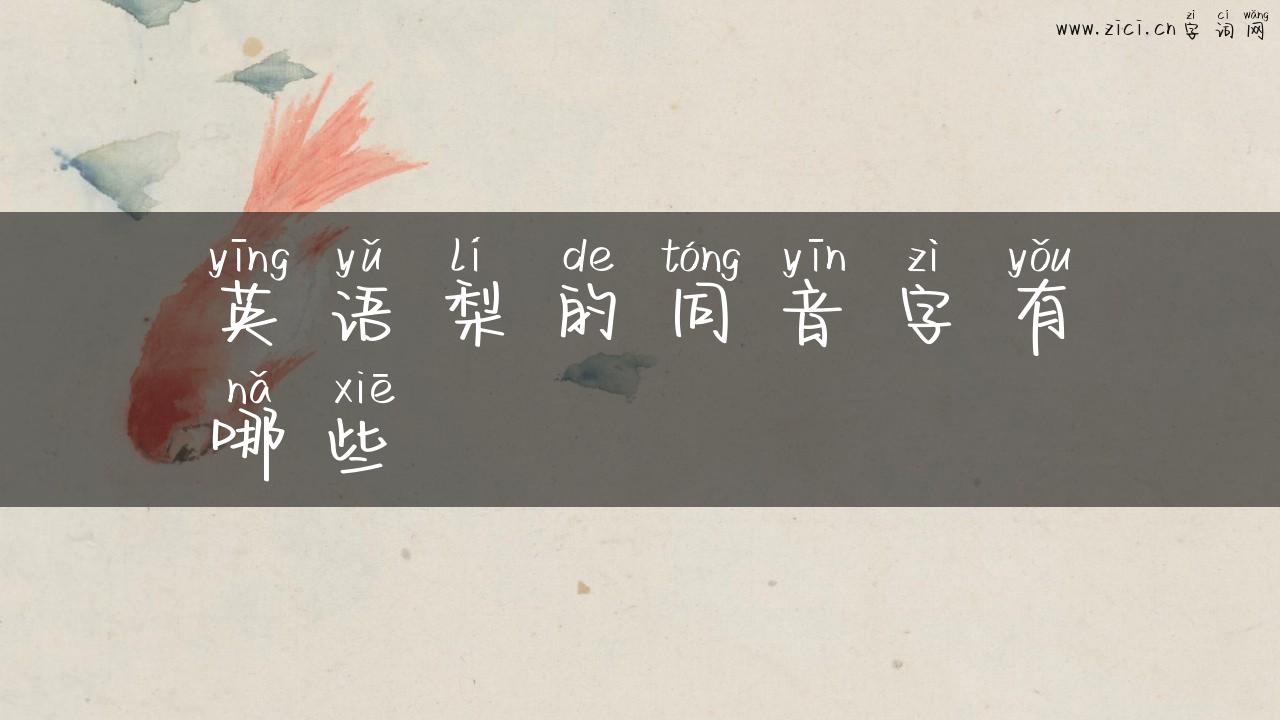 zì cí wǎng
www.zici.cn字词网
yīng yǔ lí de tóng yīn zì yǒu
英语梨的同音字有
nǎ xiē
哪些